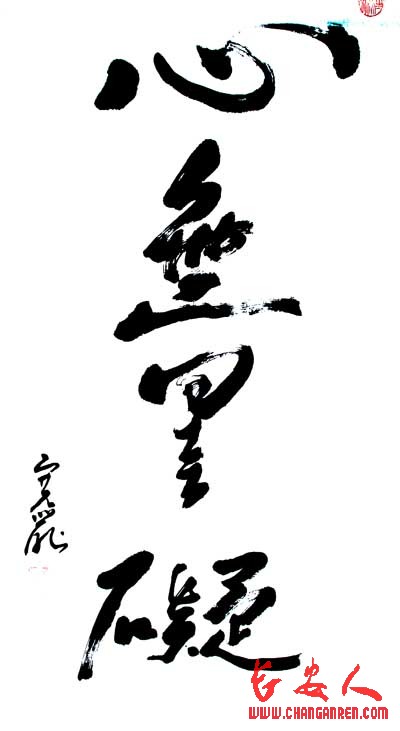 心無罣礙
长安人
WWW.CHANGANREN.COM